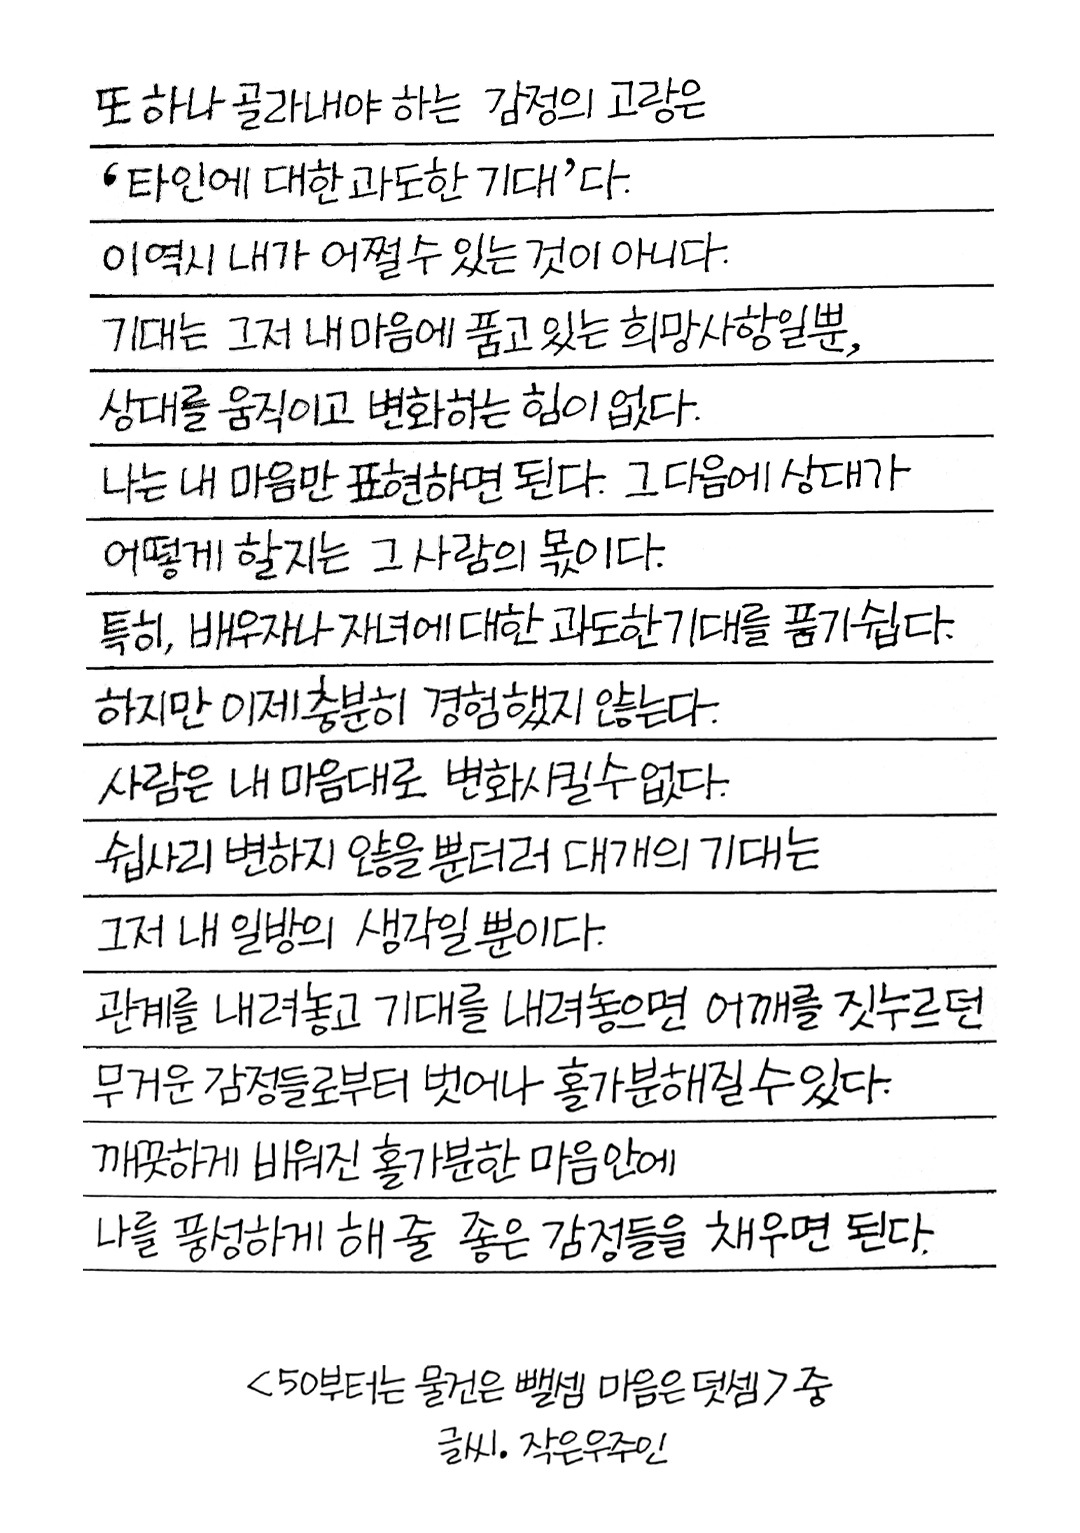 또 하나 골라내야 하는 감정의 고랑은
‘타인에 대한 과도한 기대’다.
이 역시 내가 어쩔 수 있는 것이 아니다.
기대는 그저 내 마음에 품고 있는 희망사항일 뿐,
상대를 움직이고 변화하는 힘이 없다.
나는 내 마음만 표현하면 된다. 그 다음에 상대가
어떻게 할지는 그 사람의 몫이다.
특히, 배우자나 자녀에 대한 과도한 기대를 품기 쉽다.
하지만 이제 충분히 경험했지 않는다.
사람은 내 마음대로 변화시킬 수 없다.
쉽사리 변하지 않을 뿐더러 대개의 기대는
그저 내 일방의 생각일 뿐이다.
관계를 내려놓고 기대를 내려놓으면 어깨를 짓누르던
무거운 감정들로부터 벗어나 홀가분해질 수 있다.
깨끗하게 비워진 홀가분한 마음 안에
나를 풍성하게 해 줄 좋은 감정들을 채우면 된다.
<50부터는 물건은 뺄셈 마음은 덧셈> 중
글씨. 작은우주인